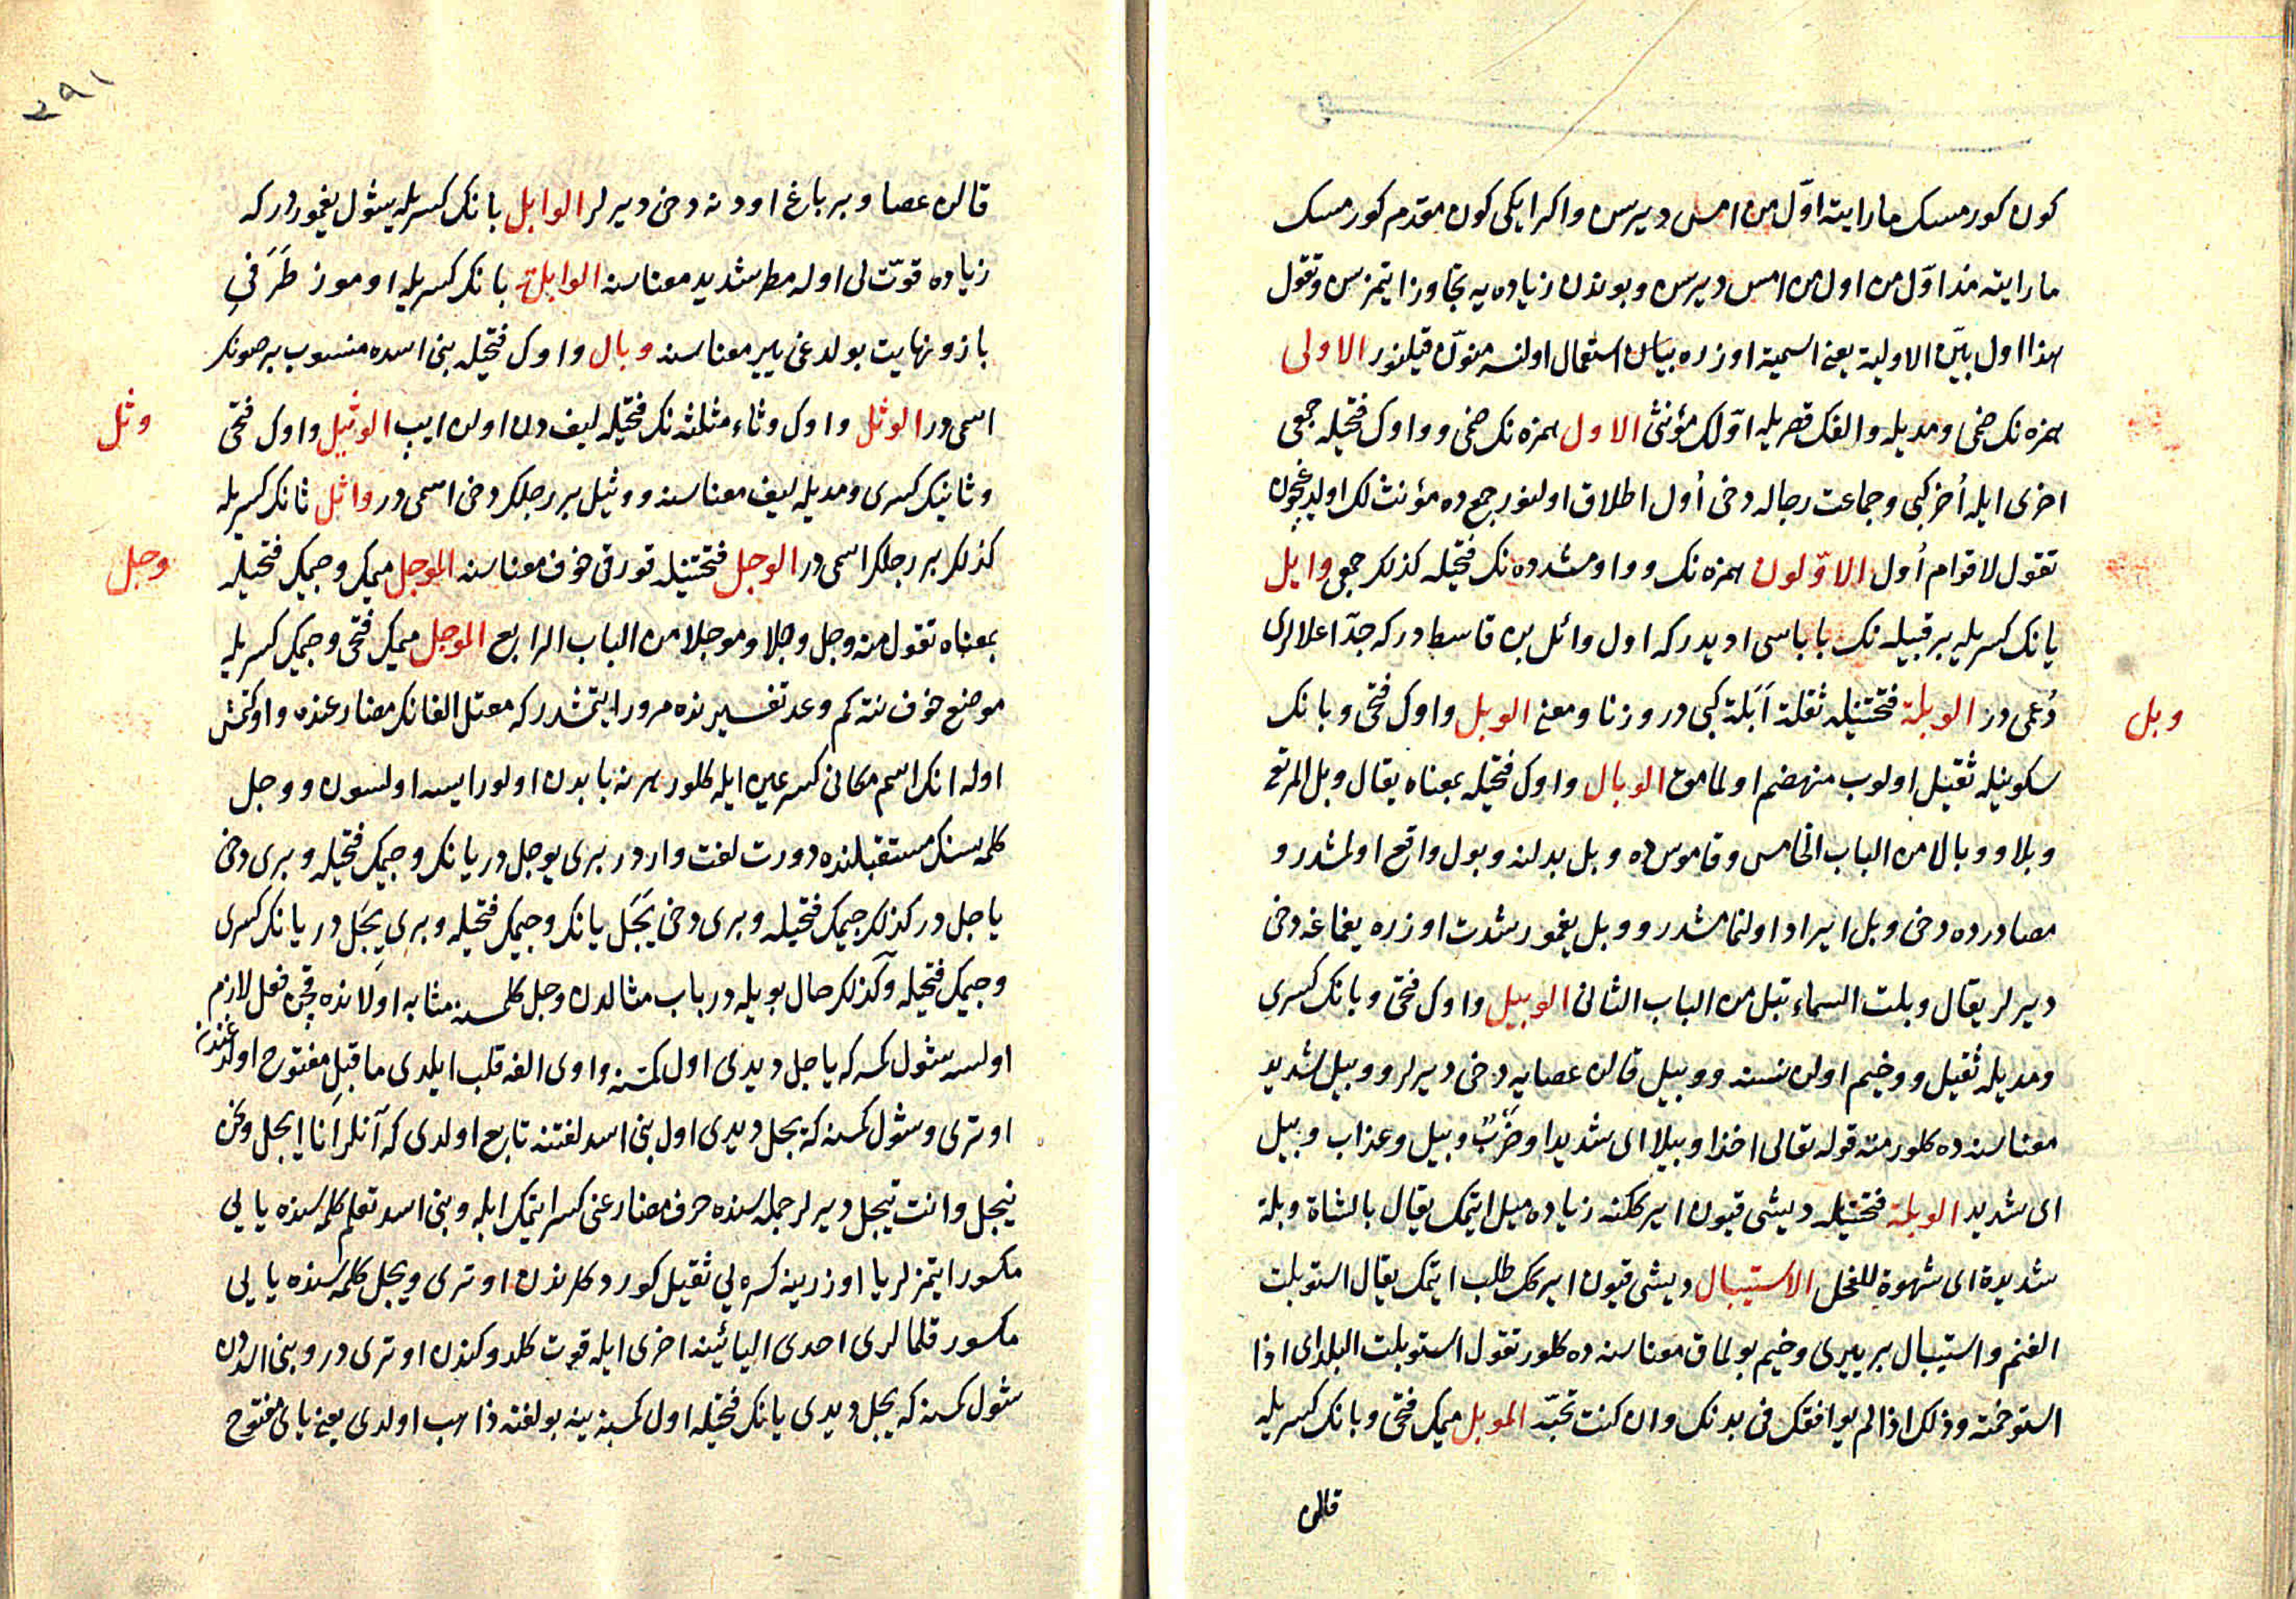 كون كورمسك ما رايته اوّل من امس ديرسن واكر ايكى كون مقدم كورمسك
ما رايته مذ اوّل من اول من امس ديرسن وبوندن زياده يه تجاوز ايتمزسن وتقول
هذا اول بيّن الاولية يعنى اسمية اوزره بيان استعمال اولنسه منوّن قيلنور الاولى
همزه نك ضمى ومديله والفك قصريله اوّلك مؤنثى الاول همزه نك ضمى وواوك فتحيله جمعى
اخرى ايله اُخر كبى وجماعت رجاله دخى اُول اطلاق اولنور جمع ده مؤنث لك اولديغيچون
تقول لاقوام اُول الاوّلون همزه نك وواو مشدده نك فتحيله كذلك جمعى وايل
يانك كسريله بر قبيله نك باباسى اديدر كه اول وائل بن قاسط در كه جدّ اعلالرى
دُعمى در الوبلة فتحتينله ثقلة اَبَلة كبى در وزنا ومعنى الوبل واوك فتحى وبانك
وبل
سكونيله ثقيل اولوب منهضم اولمامق الوبال واوك فتحيله بمعناه يقال وبل المرتع
وبلا ووبالا من الباب الخامس وقاموس ده وبل بدلنه وبول واقع اولمشدر و
مصادرده دخى وبل ايراد اولنمامشدر ووبل يغمور شدت اوزره يغماغه دخى
ديرلر يقال وبلت السماء تبل من الباب الثانى الوبيل واوك فتحى وبانك كسرى
ومديله ثقيل ووخيم اولان نسنه ووبيل قالن عصايه دخى ديرلر ووبيل شديد
معناسنه ده كلور منه قوله تعالى اخذا وبيلا اى شديدا وضربٌ وبيل وعذاب وبيل
اى شديد الوبلة فتحتينله ديشى قيون اير ككنه زياده ميل ايتمك يقال بالشاة وبلة
شديدة اى شهوة للفحل الاستيبال ديشى قيون اير كك طلب ايتمك يقال استوبلت
الغنم واستيبال بر ييرى وخيم بولماق معناسنه ده كلور تقول استوبلت البلد اى اذا
استوخمته وذلك اذا لم يوافقك فى بدنك وان كنت تحبّه الموبل ميمك فتحى وبانك كسريله
قالن
٢٩١
قالن عصا وبر باغ اودنه دخى ديرلر الوابل بانك كسريله شول يغموردر كه
زياده قوّتلى اوله مطر شديد معناسنه الوابلة بانك كسريله اوموز طَرَفى
بازو نهايت بولدغى يير معناسنه وبال واوك فتحيله بنى اسده منسوب بر صونك
اسمى در الوثل واوك وثاء مثلثه نك فتحيله ليفدن اولان ايپ الوثيل واوك فتحى
وثل
وثانيك كسرى ومديله ليف معناسنه ووثيل بر رجلك دخى اسمى در واثل ثانك كسريله
كذلك بر رجلك اسمى در الوجل فتحتينله قورقى خوف معناسنه الموجل ميمك وجيمك فتحيله
وجل
بمعناه تقول منه وجل وجلا وموجلا من الباب الرابع الموجل ميمك فتحى وجيمك كسريله
موضع خوف نته كم وعد تفسيرنده مرور ايتمشدر كه معتل الفانك مضارعنده واو كتمش
اوله انك اسم مكانى كسر عين ايله كلور هر نه بابدن اولور ايسه اولسون ووجل
كلمه سنك مستقبلنده دورت لغت واردر برى يوجل در يانك وجيمك فتحيله وبرى دخى
ياجل در كذلك جيمك فتحيله وبرى دخى يَيْجَل يانك وجيمك فتحيله وبرى يِيجَل در يانك كسرى
وجيمك فتحيله وكذلك حال بويله در باب مثالدن وجل كلمه سنه مثابه اولانده قچن فعل لازم
اولسه شول كمسه كه ياجل ديدى اول كمسنه واوى الفه قلب ايلدى ما قبلى مفتوح اولدغندن
اوترى وشول كمسنه كه ييجل ديدى اول بنى اسد لغتنه تابع اولدى كه آنلر اَنا ايجل ونحن
نيجل وانت تيجل ديرلر جمله سنده حرف مضارعى كسر ايتمك ايله وبنى اسد تعلم كلمه سنده يايى
مكسور ايتمزلر يا اوزرينه كسره يى ثقيل كوردكلرندن اوترى وييجل كلمه سنده يايى
مكسور قلمالرى احدى اليائين اخرى ايله قوت كلدوكندن اوترى در وبنى اسددن
شول كمسنه كه ييجل ديدى يانك فتحيله اول كمسنه ينه بو لغته ذاهب اولدى يعنى يايى مفتوح